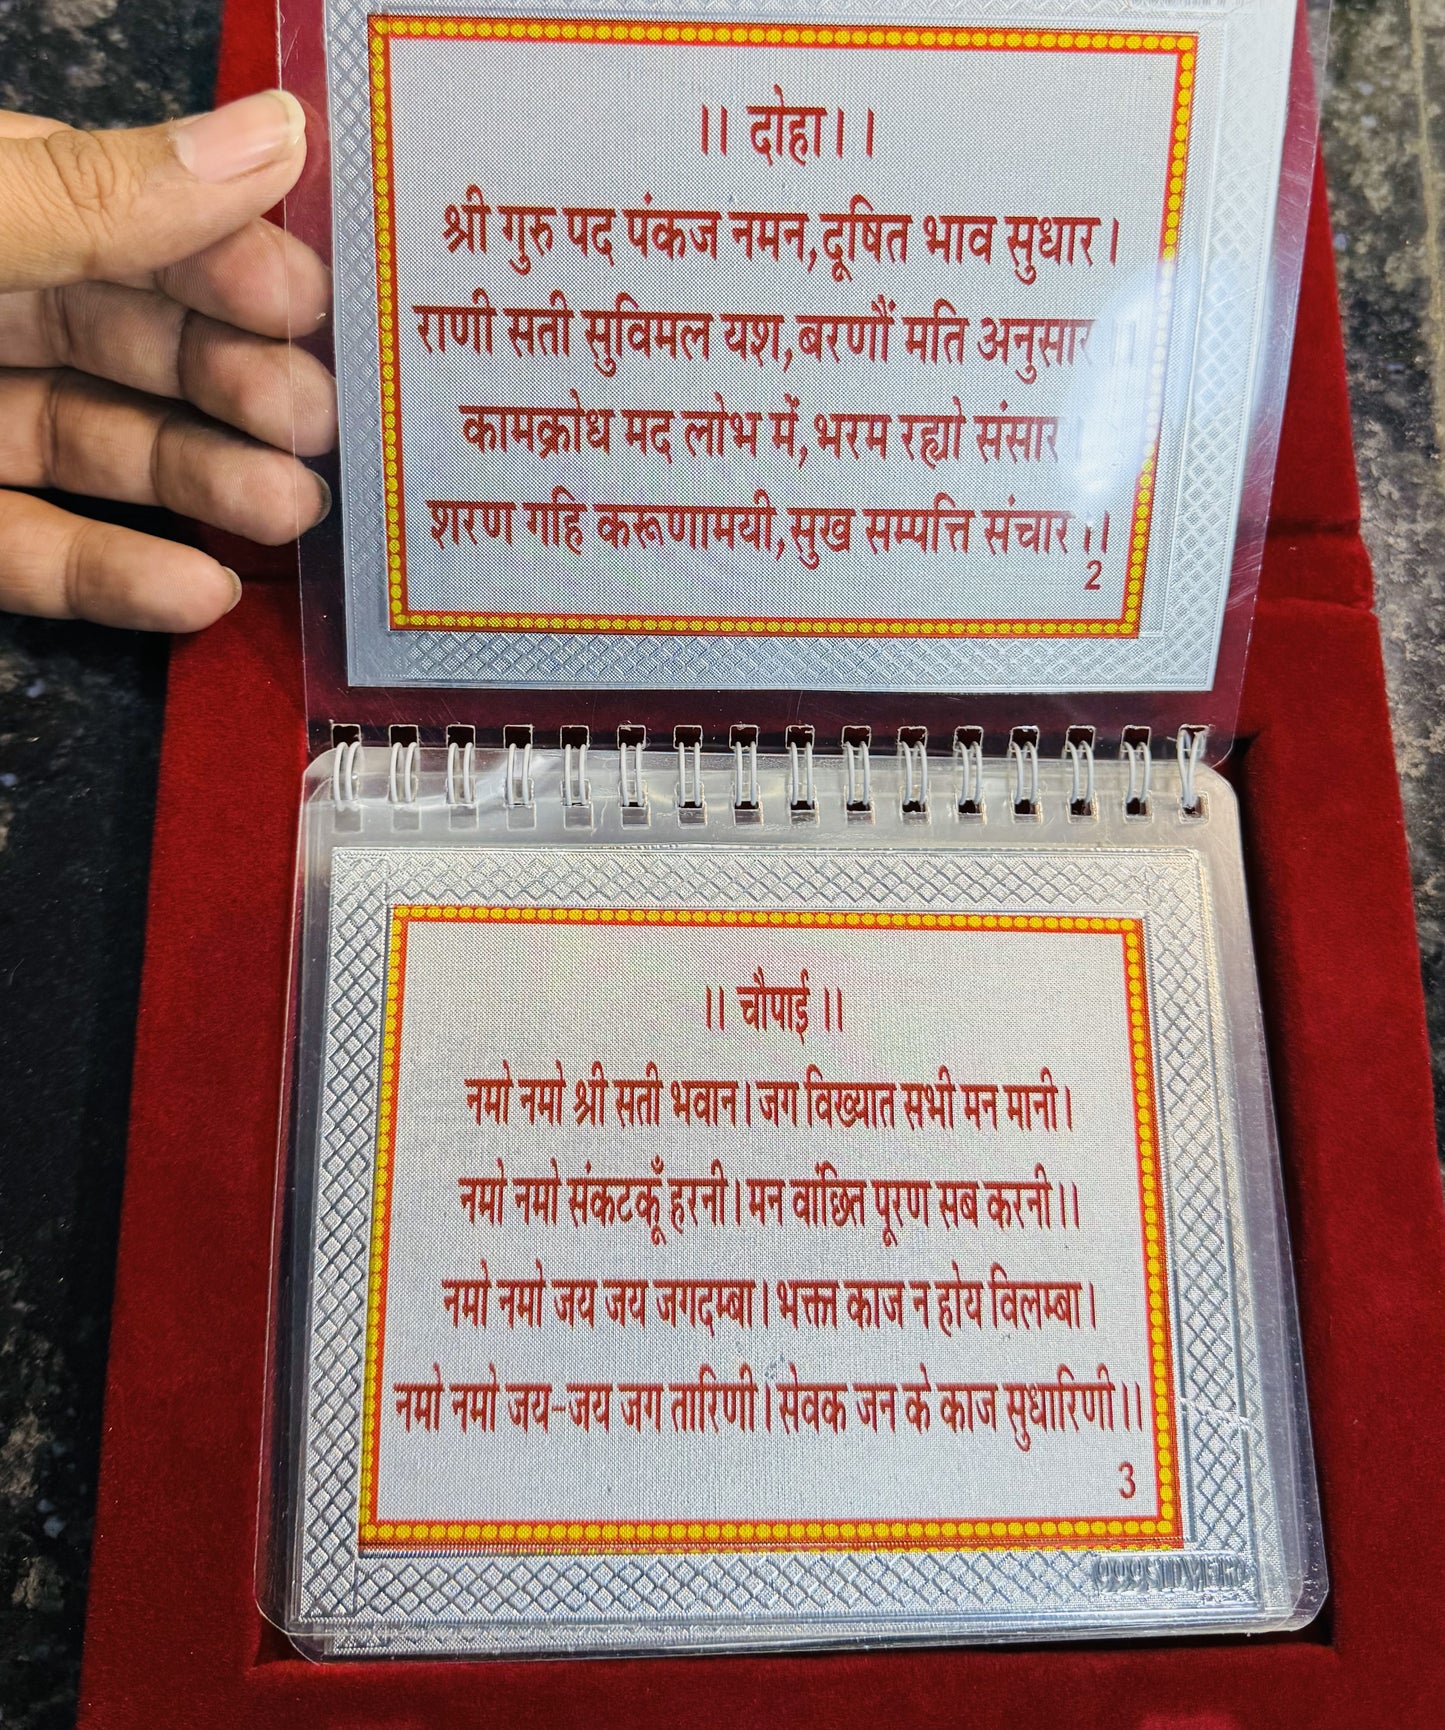 ।। दोहा।।
श्री गुरु पद पंकज नमन,दूषित भाव सुधार।
राणी सती सुविमल यश,बरणौं मति अनुसार ।।
कामक्रोध मद लोभ में,भरम रह्यो संसार।
शरण गहि करूणामयी,सुख सम्पत्ति संचार।।
2
।। चौपाई ।।
नमो नमो श्री सती भवान। जग विख्यात सभी मन मानी।
नमो नमो संकटकूँ हरनी। मन वांछित पूरण सब करनी।।
नमो नमो जय जय जगदम्बा। भक्त्त काज न होय विलम्बा।
नमो नमो जय-जय जग तारिणी। सेवक जन के काज सुधारिणी।।
3
999 SILVER